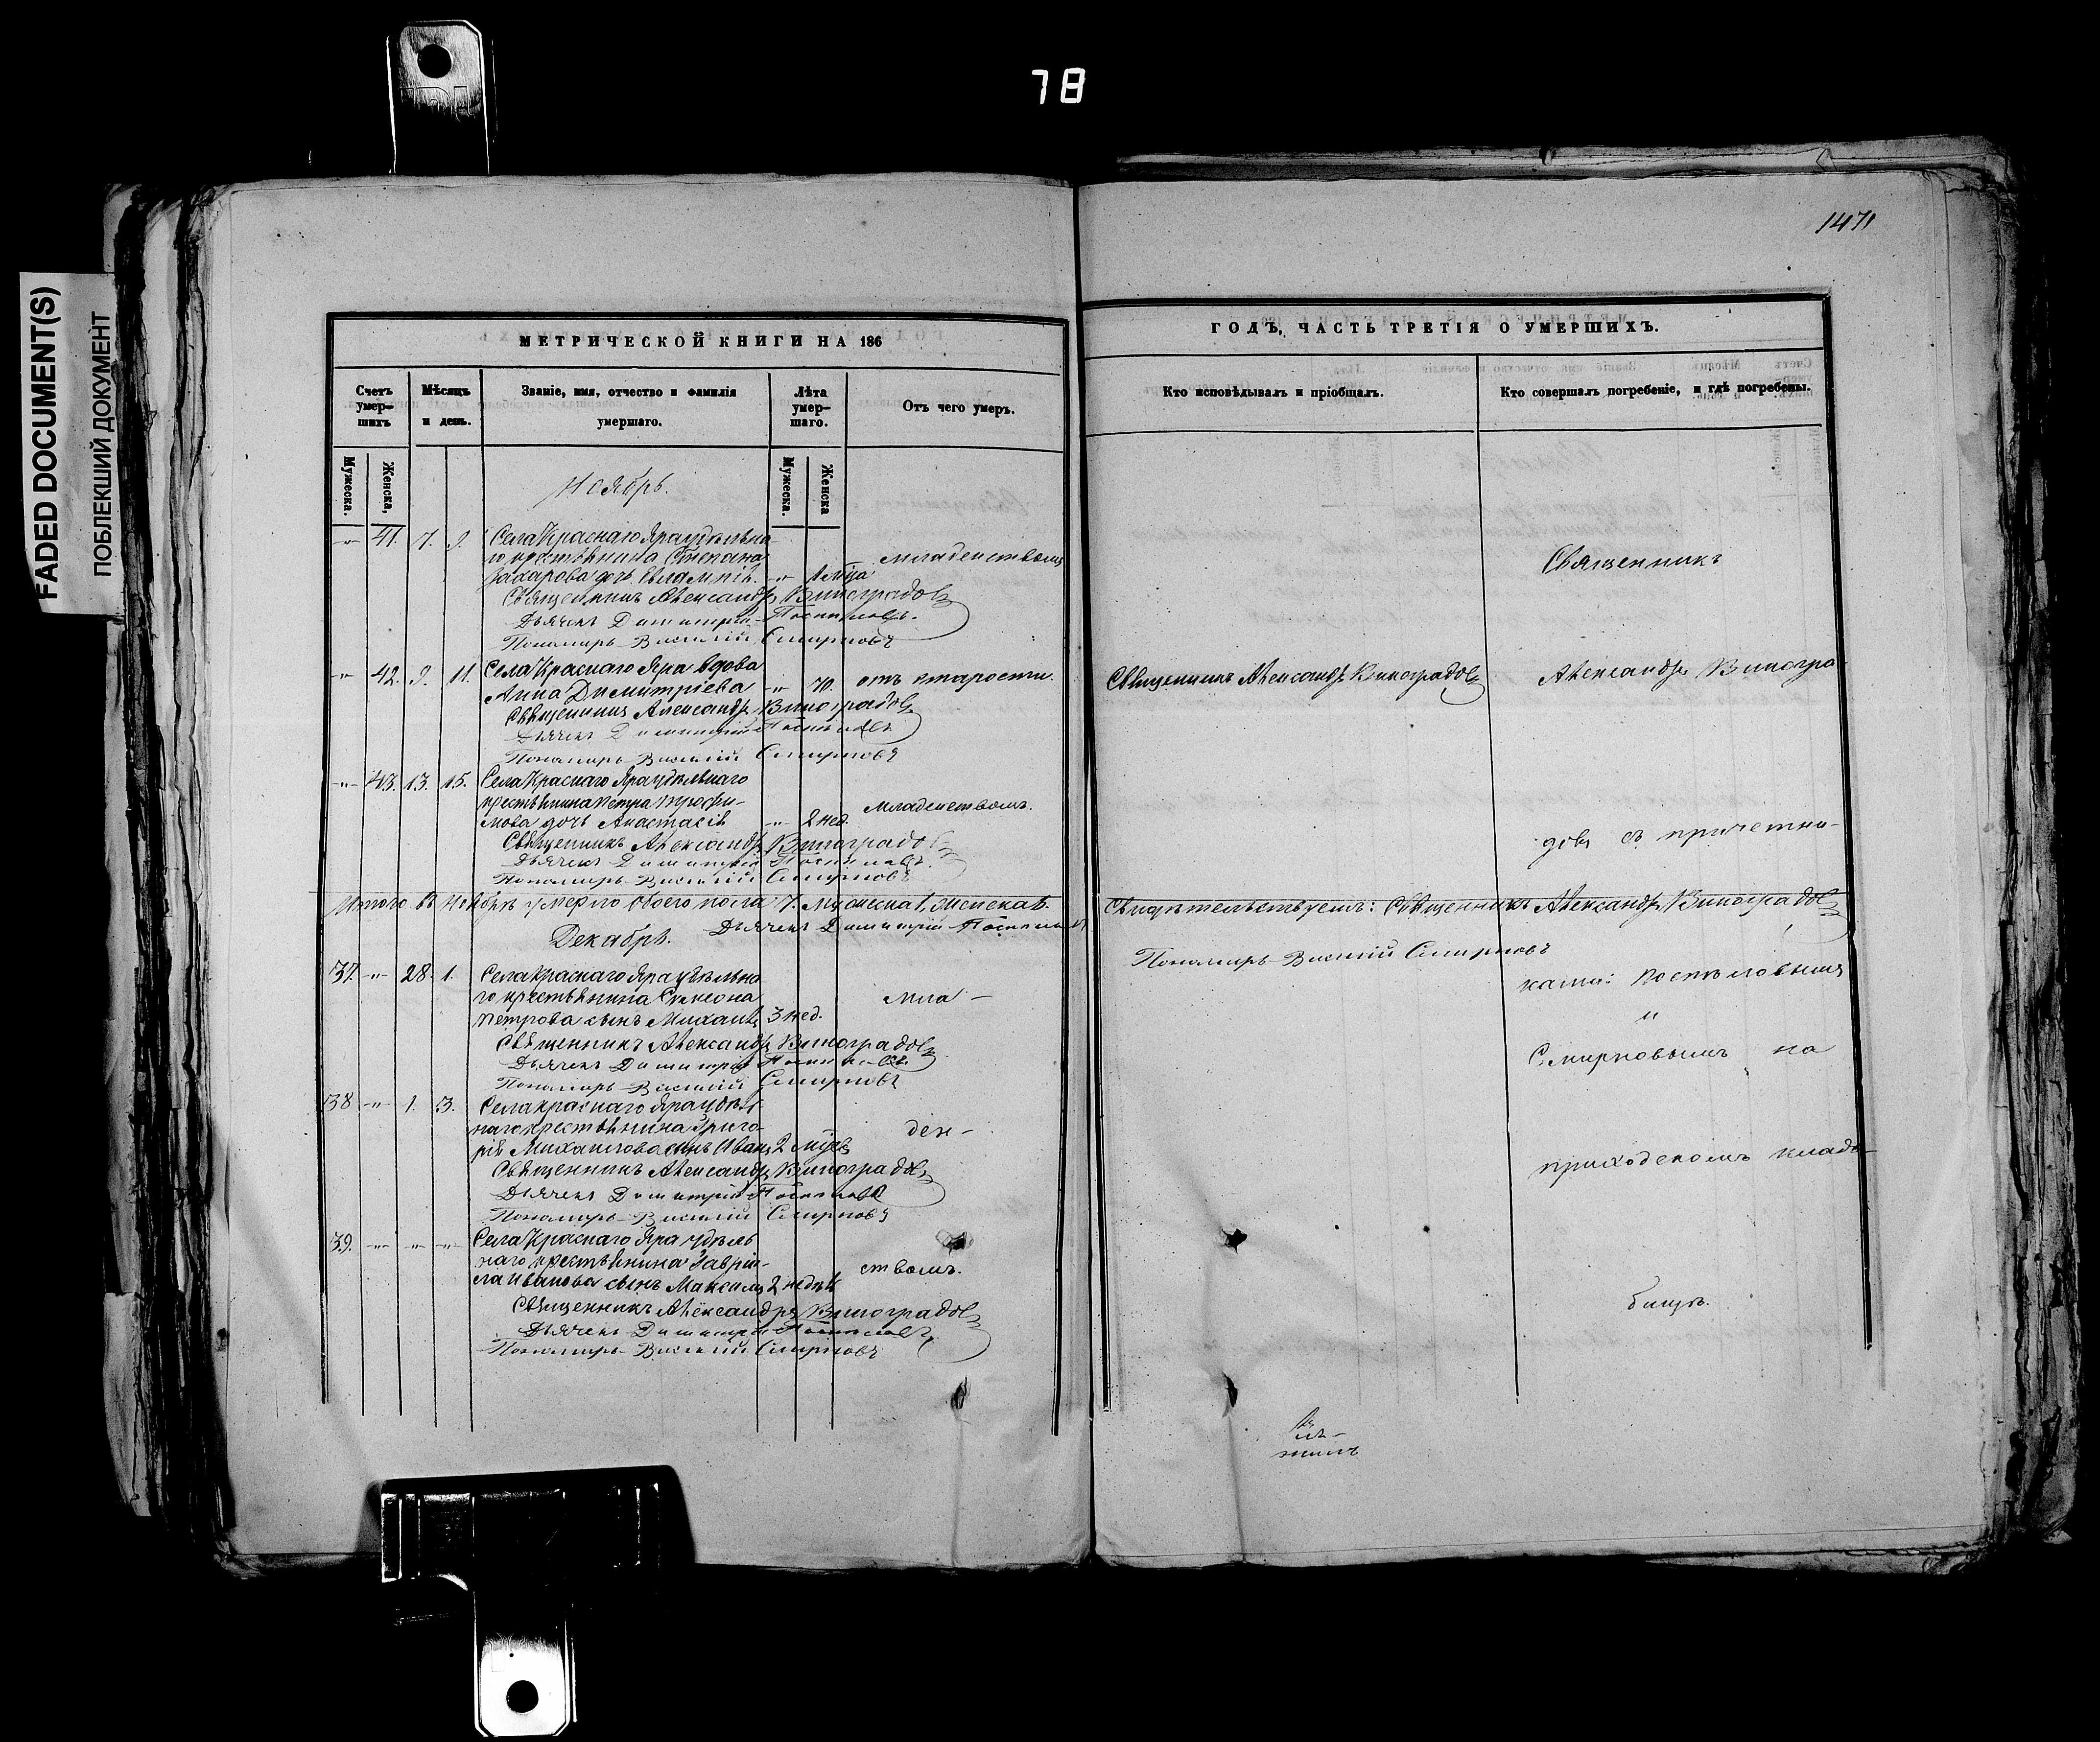 78
FADED DOCUMENT(S)
ПОБЛЕКШИЙ ДОКУМЕНТ
1471
МЕТРИЧЕСКОЙ КНИГИ НА 186
Счетъ умер-шихъ
Мѣсяцъ и день.
Званіе, имя, отчество и фамилія умершаго.
Лѣта умер-шаго.
Отъ чего умеръ.
Мужеска.
Женска,
Мужеска.
Женска
Ноябрь.
-"- 41. 7. 9. Села Краснаго Яра удѣльна-
го крестьянина Стефана младенствомъ
Захарова дочь Евлампія. -"- 1 м-ца
Священникъ Александръ Виноградовъ
Дьячекъ Димитрій Постниковъ.
Пономарь Василій Смирновъ
-"- 42. 9. 11. Села Краснаго Яра вдова
Анна Димитріева -"- 70. отъ старости.
Священникъ Александръ Виноградовъ
Дьячекъ Димитрій
Пономарь Василій Смирновъ
-"- 43. 13. 15. Села Краснаго Яра удѣльнаго
крестьянина Петра Трофи-
мова дочь Анастасія -"- 2 нед. младенствомъ.
Священникъ Александръ Виноградовъ
Дьячекъ Димитрій
Пономарь Василій Смирновъ
Итого въ Ноябрѣ умерло обоего пола 7. мужеска 1, женска 6.
Дьячекъ Димитрій
Декабрь.
37. -"- 28. 1. Села Краснаго Яра удѣльна-
го крестьянина Симеона мла-
Петрова сынъ Михаилъ 3 нед.
Священникъ Александръ Виноградовъ
Дьячекъ Димитрій
Пономарь Василій Смирновъ
38 -"- 1. 3. Села Краснаго Яра удѣль-
наго крестьянина Григо- ден-
рія Михаилова сынъ Иванъ 2 м-цѣ
Священникъ Александръ Виноградовъ
Дьячекъ Димитрій
Пономарь Василій Смирновъ
39. -"- -"- -"- Села Краснаго Яра удѣль-
наго крестьянина Гаврі- ствомъ.
ла Иванова сынъ Максимъ 2 недѣль
Священникъ Александръ Виноградовъ
Дьячекъ Димитрій
Пономарь Василій Смирновъ
ГОДЪ, ЧАСТЬ ТРЕТІЯ О УМЕРШИХЪ.
Кто исповѣдывалъ и пріобщалъ.
Кто совершалъ погребеніе, и гдѣ погребены.
Священникъ
Священникъ Александръ Виноградовъ
Александръ Виногра-
довъ съ причетни-
Свидѣтельствуемъ: Священникъ Александръ Виноградовъ
Пономарь Василій Смирновъ
ками:
и
Смирновымъ на
приходскомъ клад-
бищѣ.